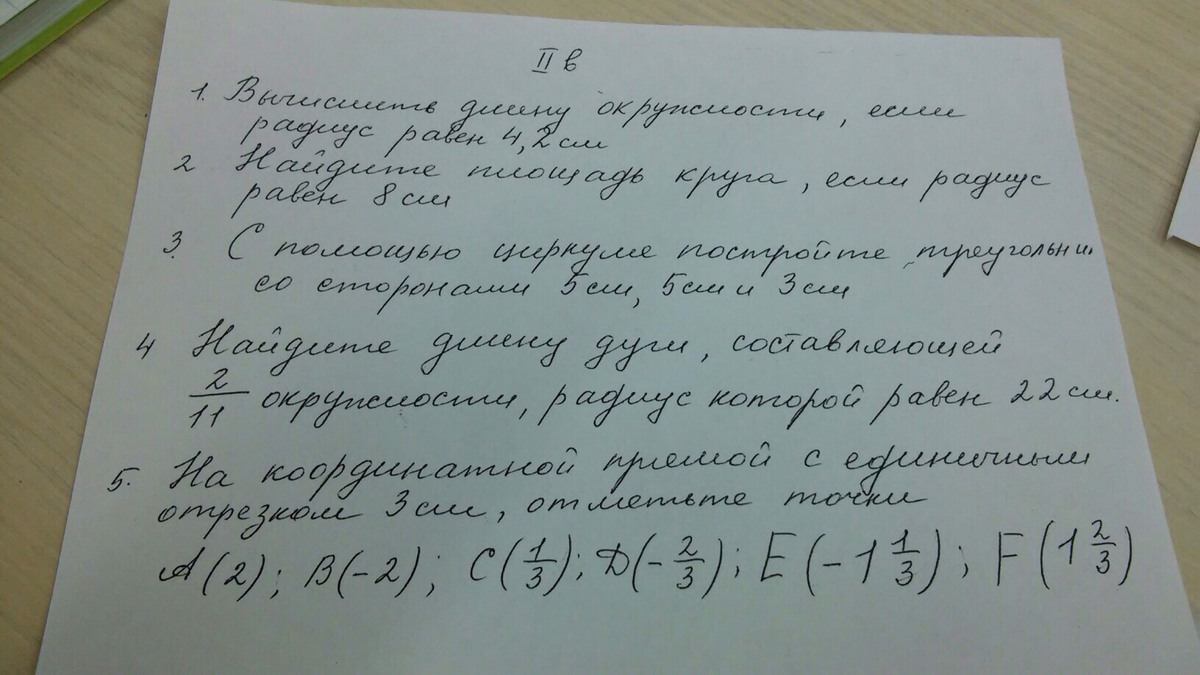 II в
1. Вычислить длину окружности, если
радиус равен 4,2 см
2 Найдите площадь круга, если радиус
равен 8 см
3. С помощью циркуле постройте треугольни
со сторонами 5 см, 5 см и 3 см
4 Найдите длину дуги, составляющей
2/11 окружности, радиус которой равен 22 см.
5. На координатной прямой с единичным
отрезком 3 см, отметьте точки
A(2); B(-2); C(1/3); D(-2/3); E(-1 1/3); F(1 2/3)